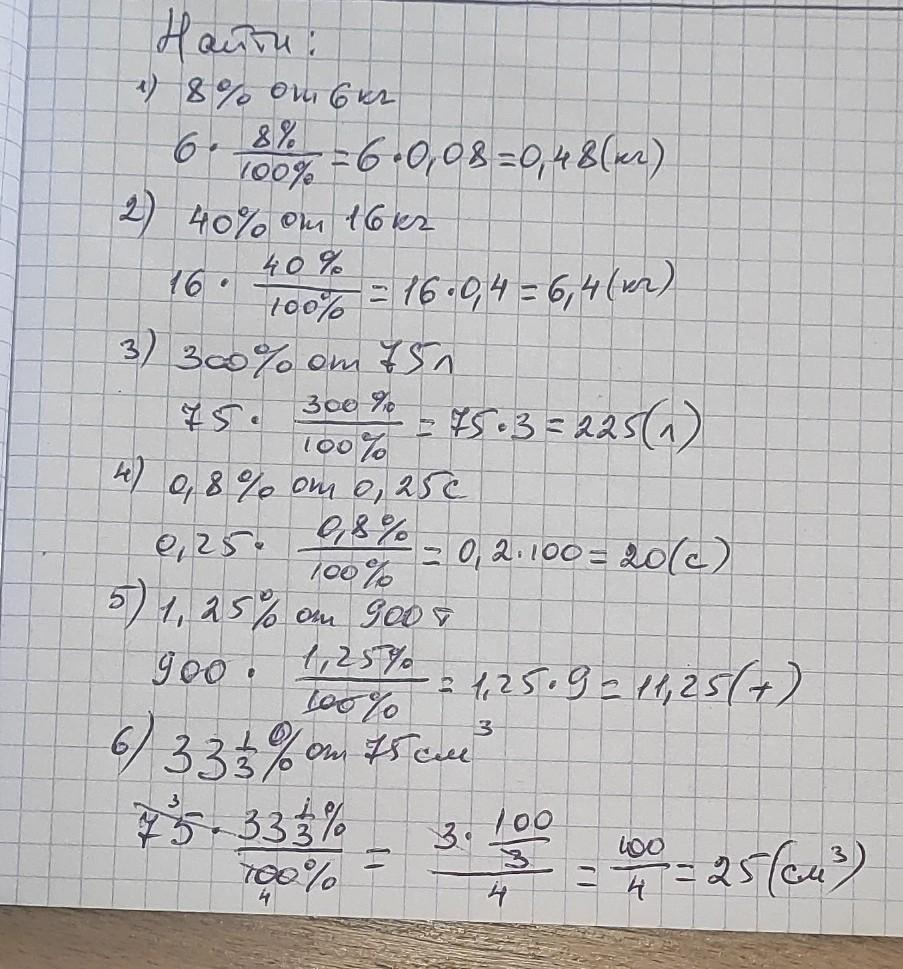 Найти:
1) 8% от 6 кг
6 · 8%/100% = 6 · 0,08 = 0,48 (кг)
2) 40% от 16 кг
16 · 40%/100% = 16 · 0,4 = 6,4 (кг)
3) 300% от 75 л
75 · 300%/100% = 75 · 3 = 225 (л)
4) 0,8% от 0,25 с
0,25 · 0,8%/100% = 0,2 · 100 = 20 (с)
5) 1,25% от 900 т
900 · 1,25%/100% = 1,25 · 9 = 11,25 (т)
6) 33 1/3 % от 75 см³
75 3 · 33 1/3 %/100% 4 = 3 · 100/3 / 4 = 100/4 = 25 (см³)